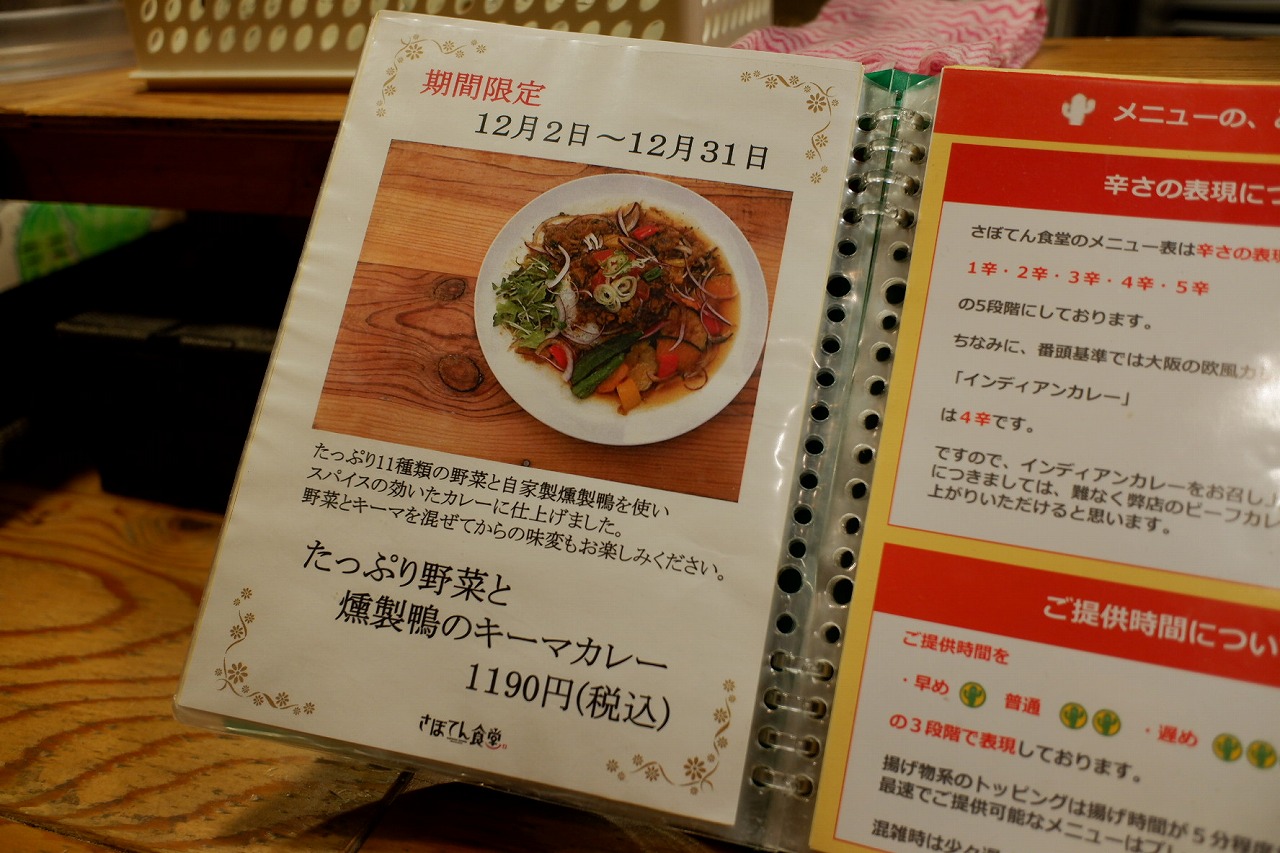 期間限定
12月2日～12月31日
たっぷり11種類の野菜と自家製燻製鴨を使い
スパイスの効いたカレーに仕上げました。
野菜とキーマを混ぜてからの味変もお楽しみください。
たっぷり野菜と
燻製鴨のキーマカレー
1190円(税込)
さぼてん食堂
メニューの、
辛さの表現に
さぼてん食堂のメニュー表は辛さの表現
1辛・2辛・3辛・4辛・5辛
の5段階にしております。
ちなみに、番頭基準では大阪の欧風カ
「インディアンカレー」
は4辛です。
ですので、インディアンカレーをお召し
につきましては、難なく弊店のビーフカレ
上がりいただけると思います。
ご提供時間につい
ご提供時間を
・早め 普通 ・遅め
の３段階で表現しております。
揚げ物系のトッピングは揚げ時間が５分程度
最速でご提供可能なメニューはプレ
混雑時は少々